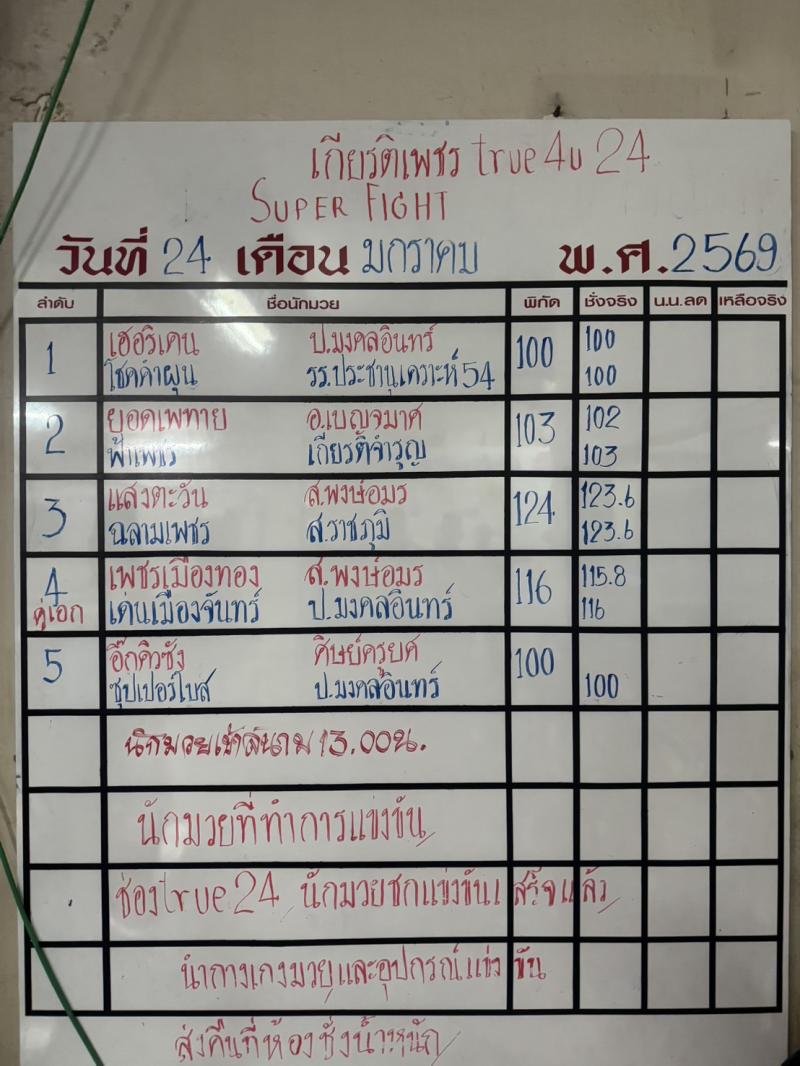 เกียรติเพชร true4u 24
SUPER FIGHT
วันที่ 24 เดือน มกราคม พ.ศ.2569
ลำดับ ชื่อนักมวย พิกัด ชั่งจริง น.น.ลด เหลือจริง
1 เฮอริเคน ป.มงคลอินทร์ 100 100
โชคคำผุน รร.ประชานุเคราะห์54 100
2 ยอดเพทาย อ.เบญจมาศ 103 102
ฟ้าเพชร เกียรติจำรูญ 103
3 แสงตะวัน ส.พงษ์อมร 124 123.6
ฉลามเพชร ส.ราชภูมิ 123.6
4 เพชรเมืองทอง ส.พงษ์อมร 116 115.8
คู่เอก เด่นเมืองจันทร์ ป.มงคลอินทร์ 116
5 อิ๊กคิวซัง ศิษย์ครูยศ 100
ซุปเปอร์ใบส ป.มงคลอินทร์ 100
นักมวยเข้าสนาม 13.00น.
นักมวยที่ทำการแข่งขัน
ช่องtrue24 นักมวยชกแข่งขันเสร็จแล้ว
นำกางเกงมวยและอุปกรณ์แข่งขัน
ส่งคืนที่ห้องชั่งน้ำหนัก